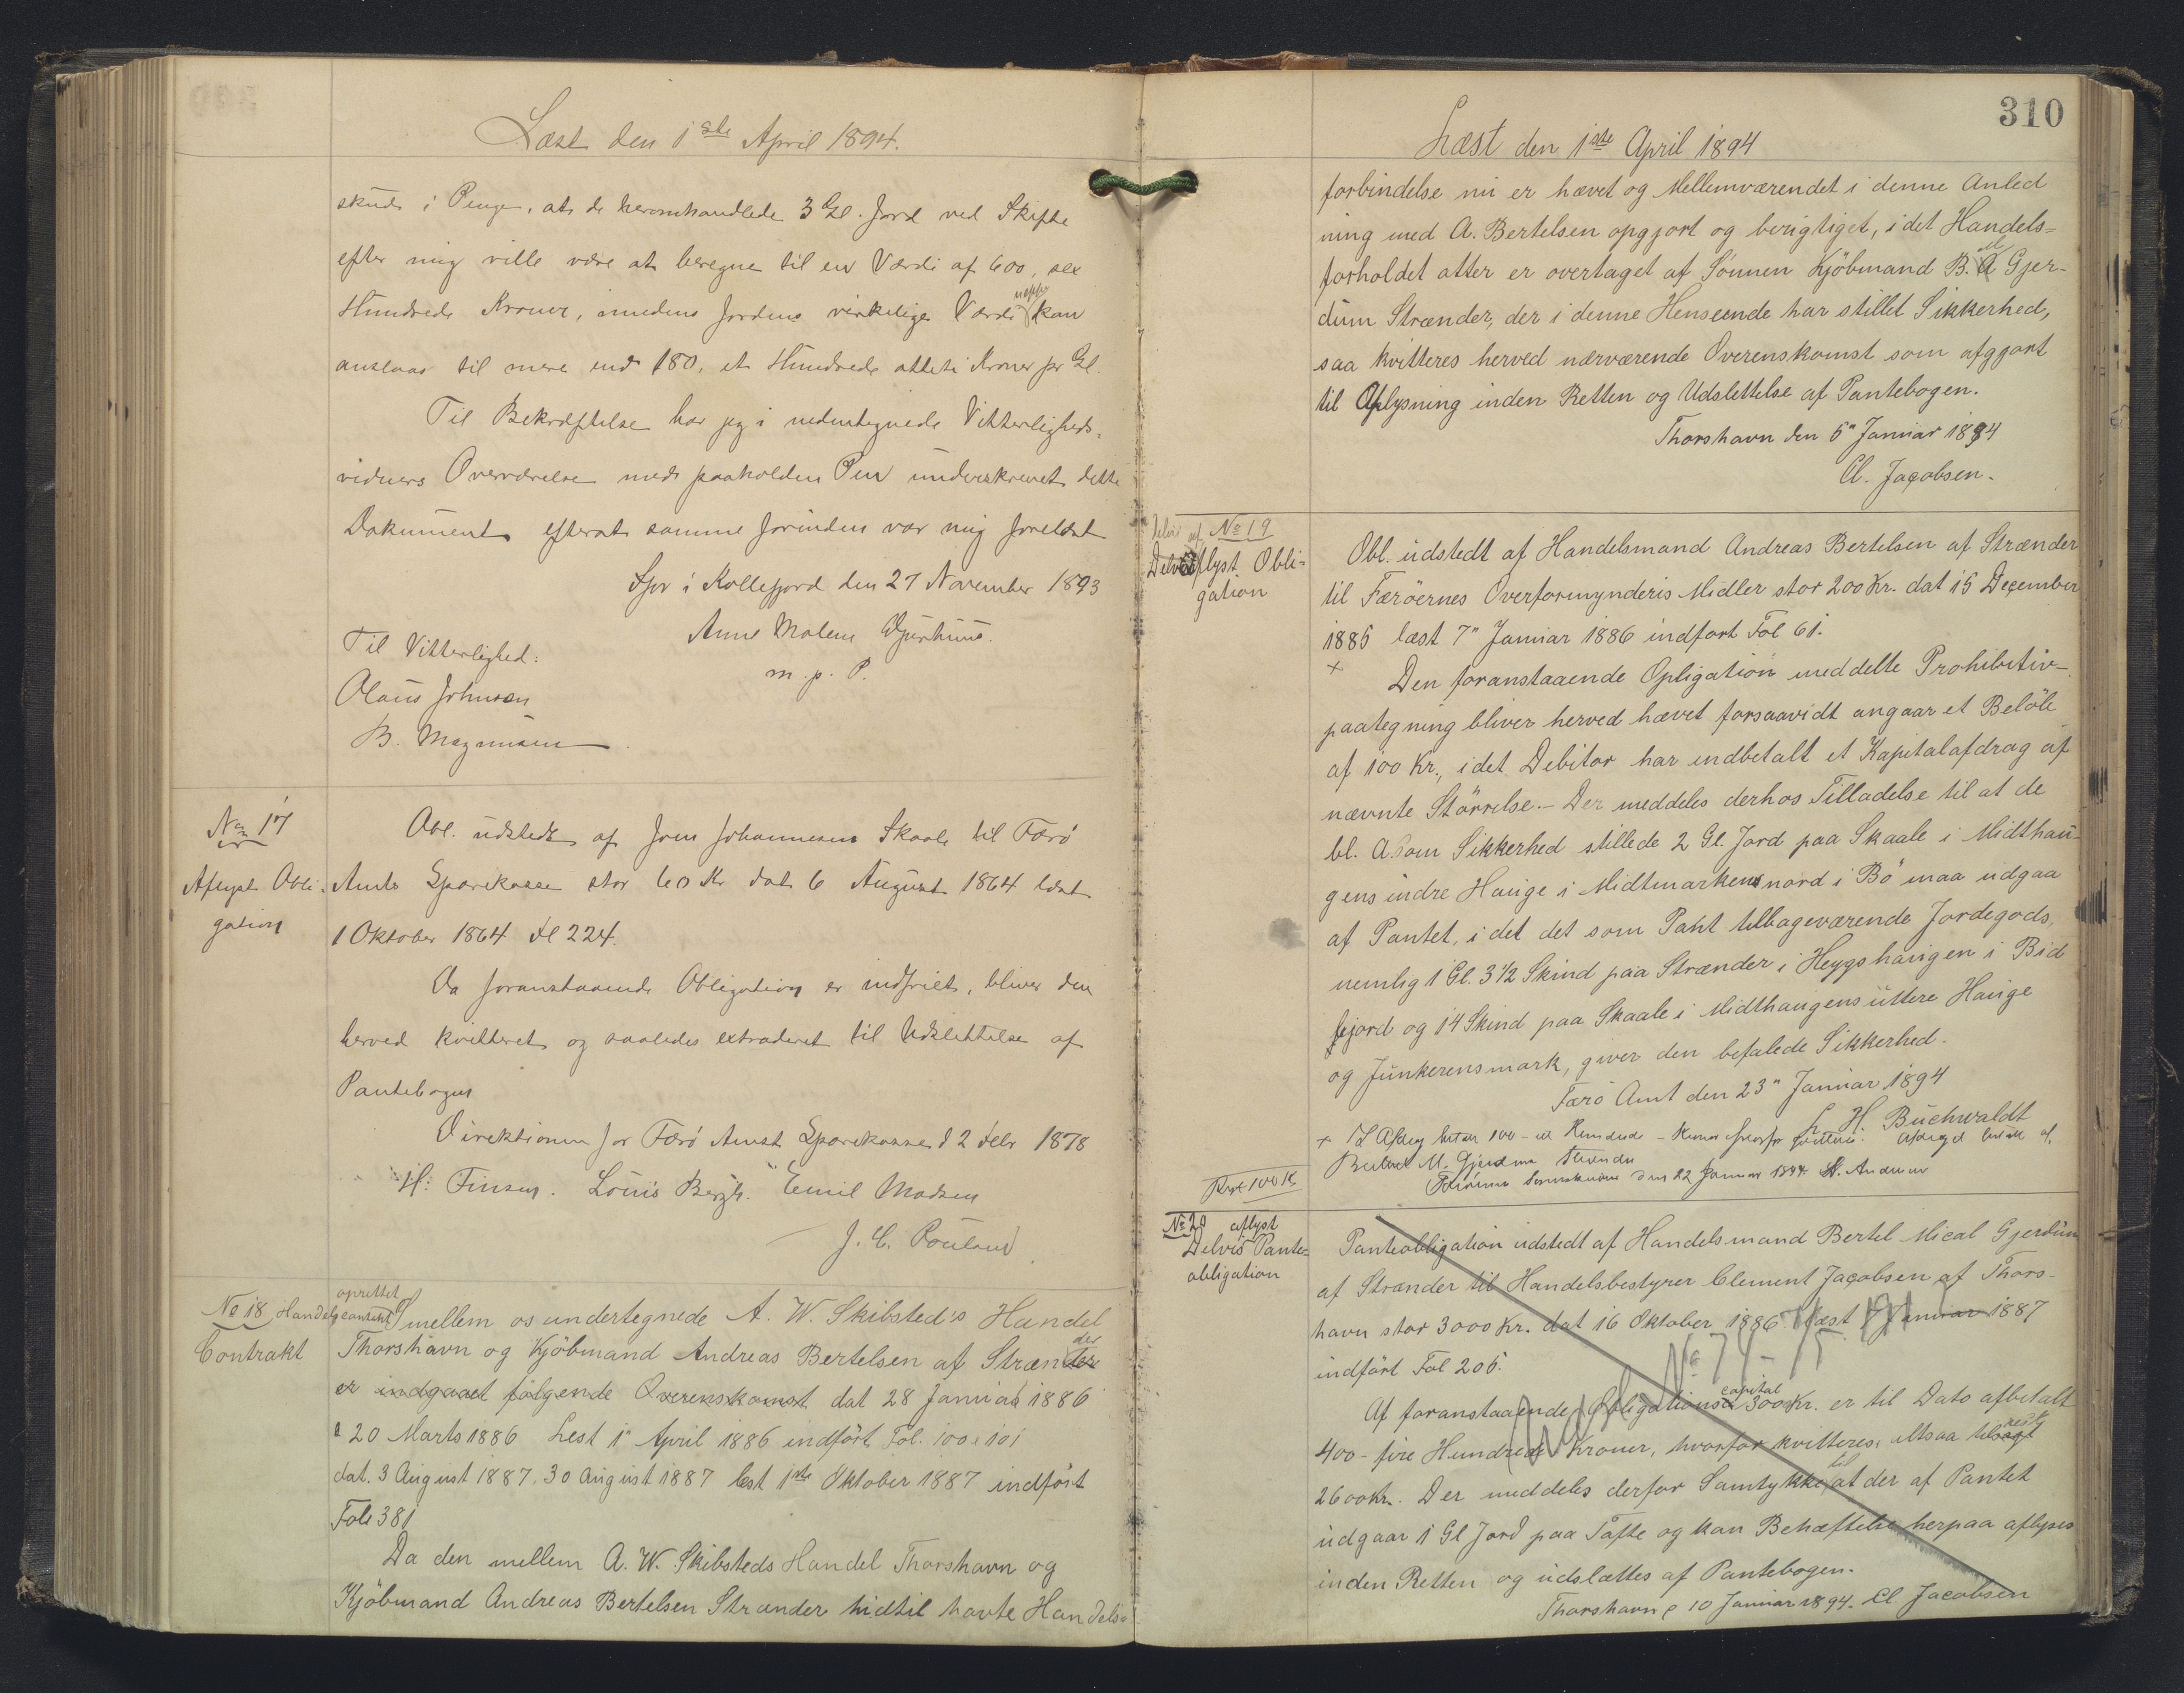 Læst den 1ste April 1894.
skud i Penge, at de heromhandlede 3 Gl. Jord ved Skifte
efter mig ville være at beregne til en Værdi af 600, sex
Hundrede Kroner, medens Jordens virkelige Værdi neppe kan
anslaas til mere end 180, et Hundrede otteti Kroner pr Gl.
Til Bekræftelse har jeg i undertegnede Vitterligheds-
vidners Overværelse med paaholden Pen underskrevet dette
Dokument efterat samme forinden var mig forelæst
i Kollefjord den 27 November 1893
Anne Malene
m. p. P.
Til Vitterlighed:
Olaus Johnsen
B. Magnusen
No 17
Aflyst Obli-
gation
Obl. udstedt af Joen Johannesen Skaale til Færö
Amts Sparekasse stor 60 Kr dat 6 August 1864 læst
1 Oktober 1864 fol 224.
Da foranstaaende Obligation er indfriet, bliver den
herved kvitteret og saaledes extraderet til Udslettelse af
Pantebogen
Direktionen for Færö Amst Sparekasse d 2 Febr 1878
H: Finsen. Louis Bergh. Emil Madsen
J. C. Poulsen
No 18 Handelscontrakt oprettet mellem os undertegnede A. W. Skibsted's Handel
Contrakt
Thorshavn og Kjöbmand Andreas Bertelsen af Strænder
er indgaaet følgende Overenskomst dat 28 Januar 1886
& 20 Marts 1886 Lest 1" April 1886 indfört Fol. 100 & 101
dat. 3 August 1887. 30 August 1887 lest 1ste Oktober 1887 indföst
Fole 381
Da den mellem A. W. Skibsteds Handel Thorshavn og
Kjöbmand Andreas Bertelsen Strænder hidtil havte Handels-
310
Læst den 1ste April 1894
forbindelse nu er hævet og Mellemværendet i denne Anled
ning med A. Bertelsen opgjort og berigtiget, idet Handels-
forholdet atter er overtaget af Sønnen Kjöbmand B. M Gjer-
dum Strænder, der i denne Henseende har stillet Sikkerhed,
saa kvitteres herved nærværende Overenskomst som afgjort
til Aflysning inden Retten og Udslettelse af Pantebogen.
Thorshavn den 5" Januar 1894
Cl. Jacobsen.
No 19
Delvis aflyst Obli-
gation
Obl. udstedt af Handelsmand Andreas Bertelsen af Strænder
til Færöernes Overformynderis Midler stor 200 Kr. dat 15 December
1885 læst 7" Januar 1886 indfort Fol 61.
+ Den foranstaaende Opligation meddelte Prohibitiv-
paategning bliver herved hævet forsaavidt angaar et Belöb
af 100 Kr., idet Debitor har indbetalt et Kapitalafdrag af
nævnte Störrelse. - Der meddeles derhos Tilladelse til at de
bl. A. som Sikkerhed stillede 2 Gl. Jord paa Skaale i Midthau-
gens indre Hauge i Midtmarken nord i Bö maa udgaa
af Pantet, idet det som Pant tilbageværende Jordegods,
nemlig 1 Gl. 3 1/2 Skind paa Strænder i Heygshaugen i Bid
fejord og 14 Skind paa Skaale i Midthaugens üttere Hauge
og Junkerensmark, giver den befalede Sikkerhed.
Færö Amt den 23" Januar 1894
L. H. Buchwaldt
+ I Afdrag betalt 100 - et Hundred - Kroner hvorfor kvitteres. Afdraget betalt af
Bertel M. Gjerdum Strænder
den 22 Januar 1894 A. Andersen
100 K
No 20 aflyst
Delvis Pante-
obligation
Panteobligation udstedt af Handelsmand Bertel Mical Gjerdum
af Strænder til Handelsbestyrer Clement Jacobsen af Thors-
havn stor 3000 Kr. dat 16 Oktober 1886 læst 7 Januar 1887
indfört Fol 205.
No 74-75
Af foranstaaende Obligations capital 3000 Kr. er til Dato afbetalt
400 - fire Hundrede Kroner, hvorfor kvitteres, altsaa rest
2600 Kr. Der meddeles derfor Samtykke til at der af Pantet
udgaar 1 Gl Jord paa Tofte og kan Behæftelse herpaa aflyses
inden Retten og udslættes af Pantebogen.
Thorshavn d 10 Januar 1894. Cl. Jacobsen